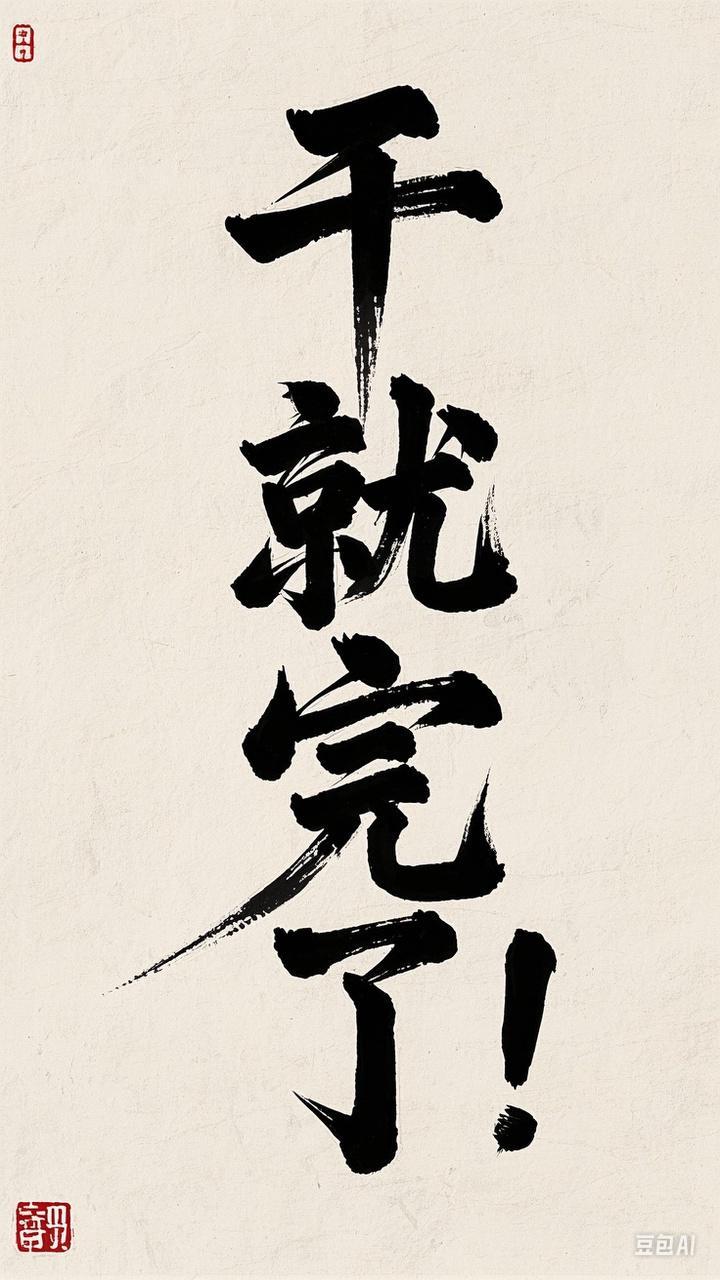 干就完了！
豆包AI